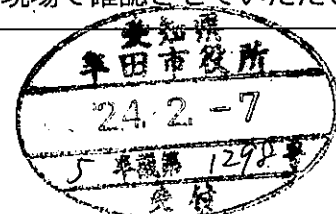 現場で確認させていただい
愛知県
半田市役所
24.2.-7
5半議第1298号
受付